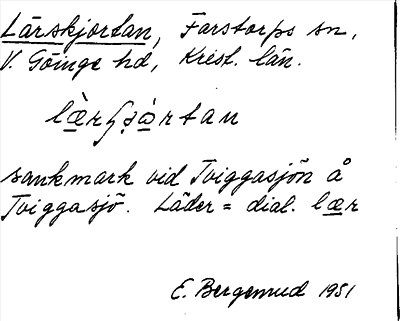 Lärskjortan, Farstorps sn,
V. Göinge hd, Krist. län.
sankmark vid Tviggasjön å
Tviggasjö. Läder = dial. lær
E. Bergemud 1951